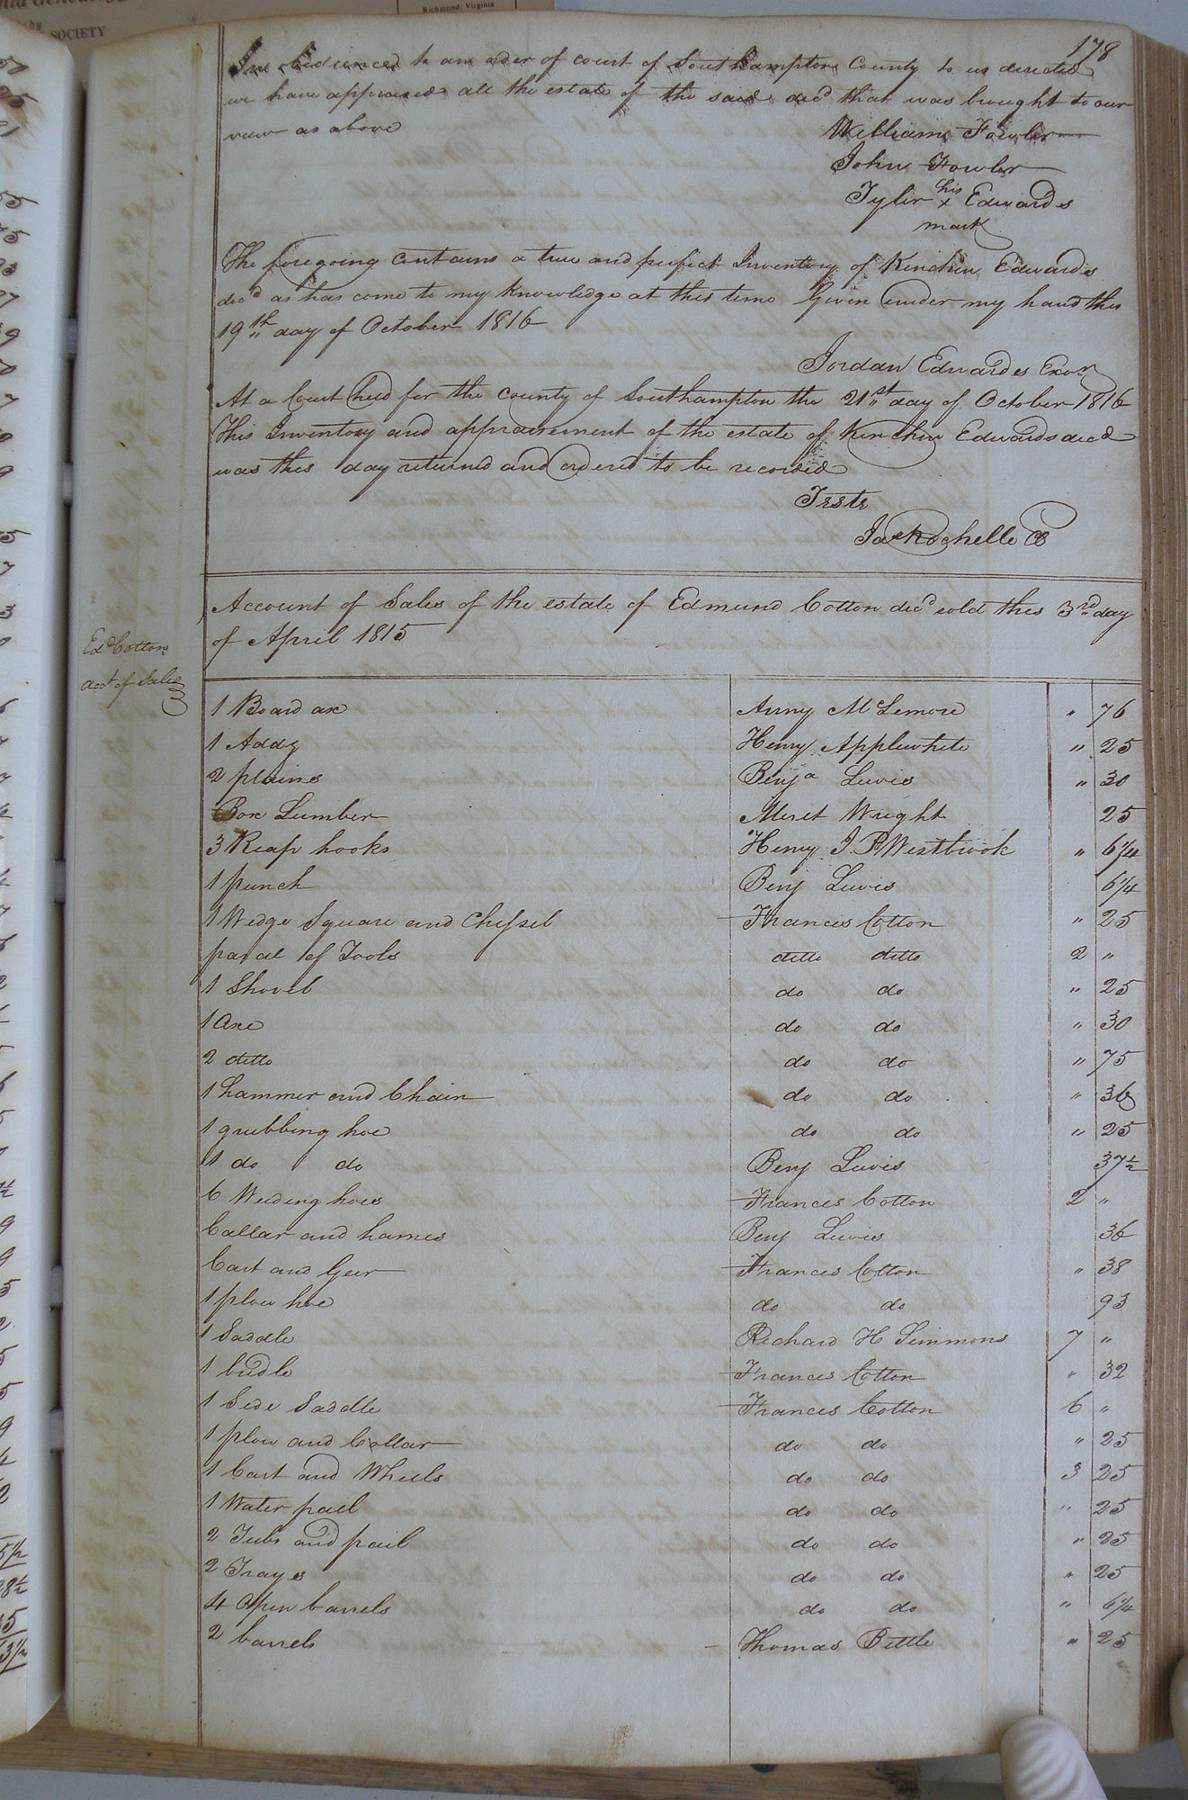 SOCIETY
Richmond, Virginia
178
In obedience to an order of court of Southampton County to us directed
we have appraised all the estate of the said decd that was brought to our
view as above
William Fowler
John Fowler
Tyler his x Edwards
mark
The foregoing contains a true and perfect Inventory of Kinchin Edwards
decd as has come to my knowledge at this time Given under my hand this
19th day of October 1816
Jordan Edwards Exor
At a Court held for the county of Southampton the 21st day of October 1816
This Inventory and appraisement of the estate of Kinchin Edwards decd
was this day returned and ordered to be recorded
Teste
Jas Rochelle CC
Account of Sales of the estate of Edmund Cotton decd sold this 3rd day
of April 1815
Ed Cotton
acct of Sales
1 Board axe Anny McLemore " 76
1 Addz Henry Applewhite " 25
2 plains Benja Lewis " 30
Box Lumber Meret Wright 25
3 Reap hooks Henry J. P Westbrook " 6 1/4
1 punch Benj Lewis 6 1/4
1 Wedge Square and Chessel Frances Cotton " 25
parcel of Tools ditto ditto 2 "
1 Shovel do do " 25
1 axe do do " 30
2 ditto do do " 75
1 hammer and Chain do do " 36
1 grubbing hoe do do " 25
1 do do Benj Lewis 37 1/2
6 Weeding hoes Frances Cotton 2 "
Collar and hames Benj Lewis 36
Cart and Geer Frances Cotton " 38
1 plow hoe do do 93
1 Saddle Richard H Simmons 7 "
1 bridle Frances Cotton " 32
1 Side Saddle Frances Cotton 6 "
1 plow and Collar do do " 25
1 Cart and Wheels do do 3 25
1 Water pail do do " 25
2 Tubs and pail do do " 25
2 Trays do do " 25
4 open barrels do do " 6 1/4
2 barrels Thomas Bittle " 25